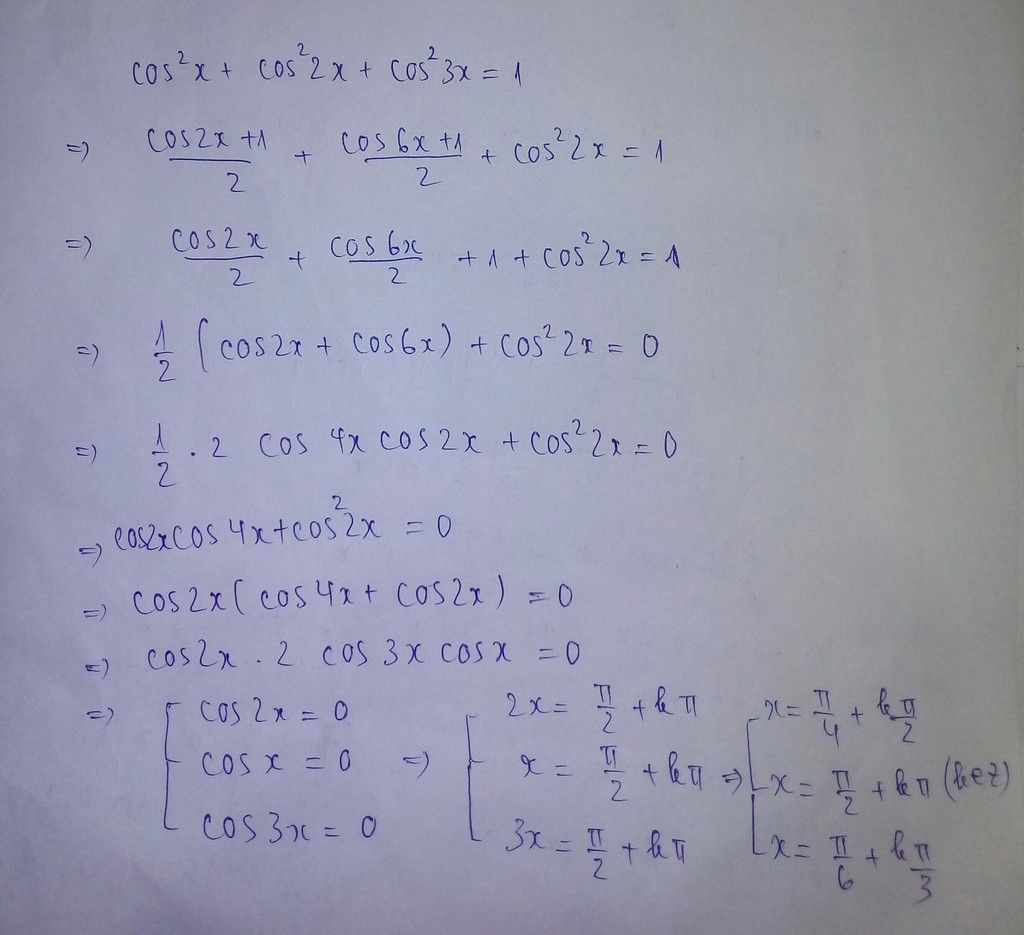 cos²x + cos²2x + cos²3x = 1
=> (cos2x +1)/2 + (cos 6x +1)/2 + cos²2x = 1
=> cos2x/2 + cos 6x/2 + 1 + cos²2x = 1
=> 1/2 (cos2x + cos6x) + cos²2x = 0
=> 1/2 . 2 cos 4x cos 2x + cos²2x = 0
=> cos2x cos 4x + cos²2x = 0
=> cos 2x ( cos 4x + cos 2x ) = 0
=> cos2x . 2 cos 3x cos x = 0
=> [ cos 2x = 0 [ 2x = π/2 + kπ [ x = π/4 + kπ/2
cos x = 0 => x = π/2 + kπ => x = π/2 + kπ (k∈Z)
cos 3x = 0 3x = π/2 + kπ x = π/6 + kπ/3